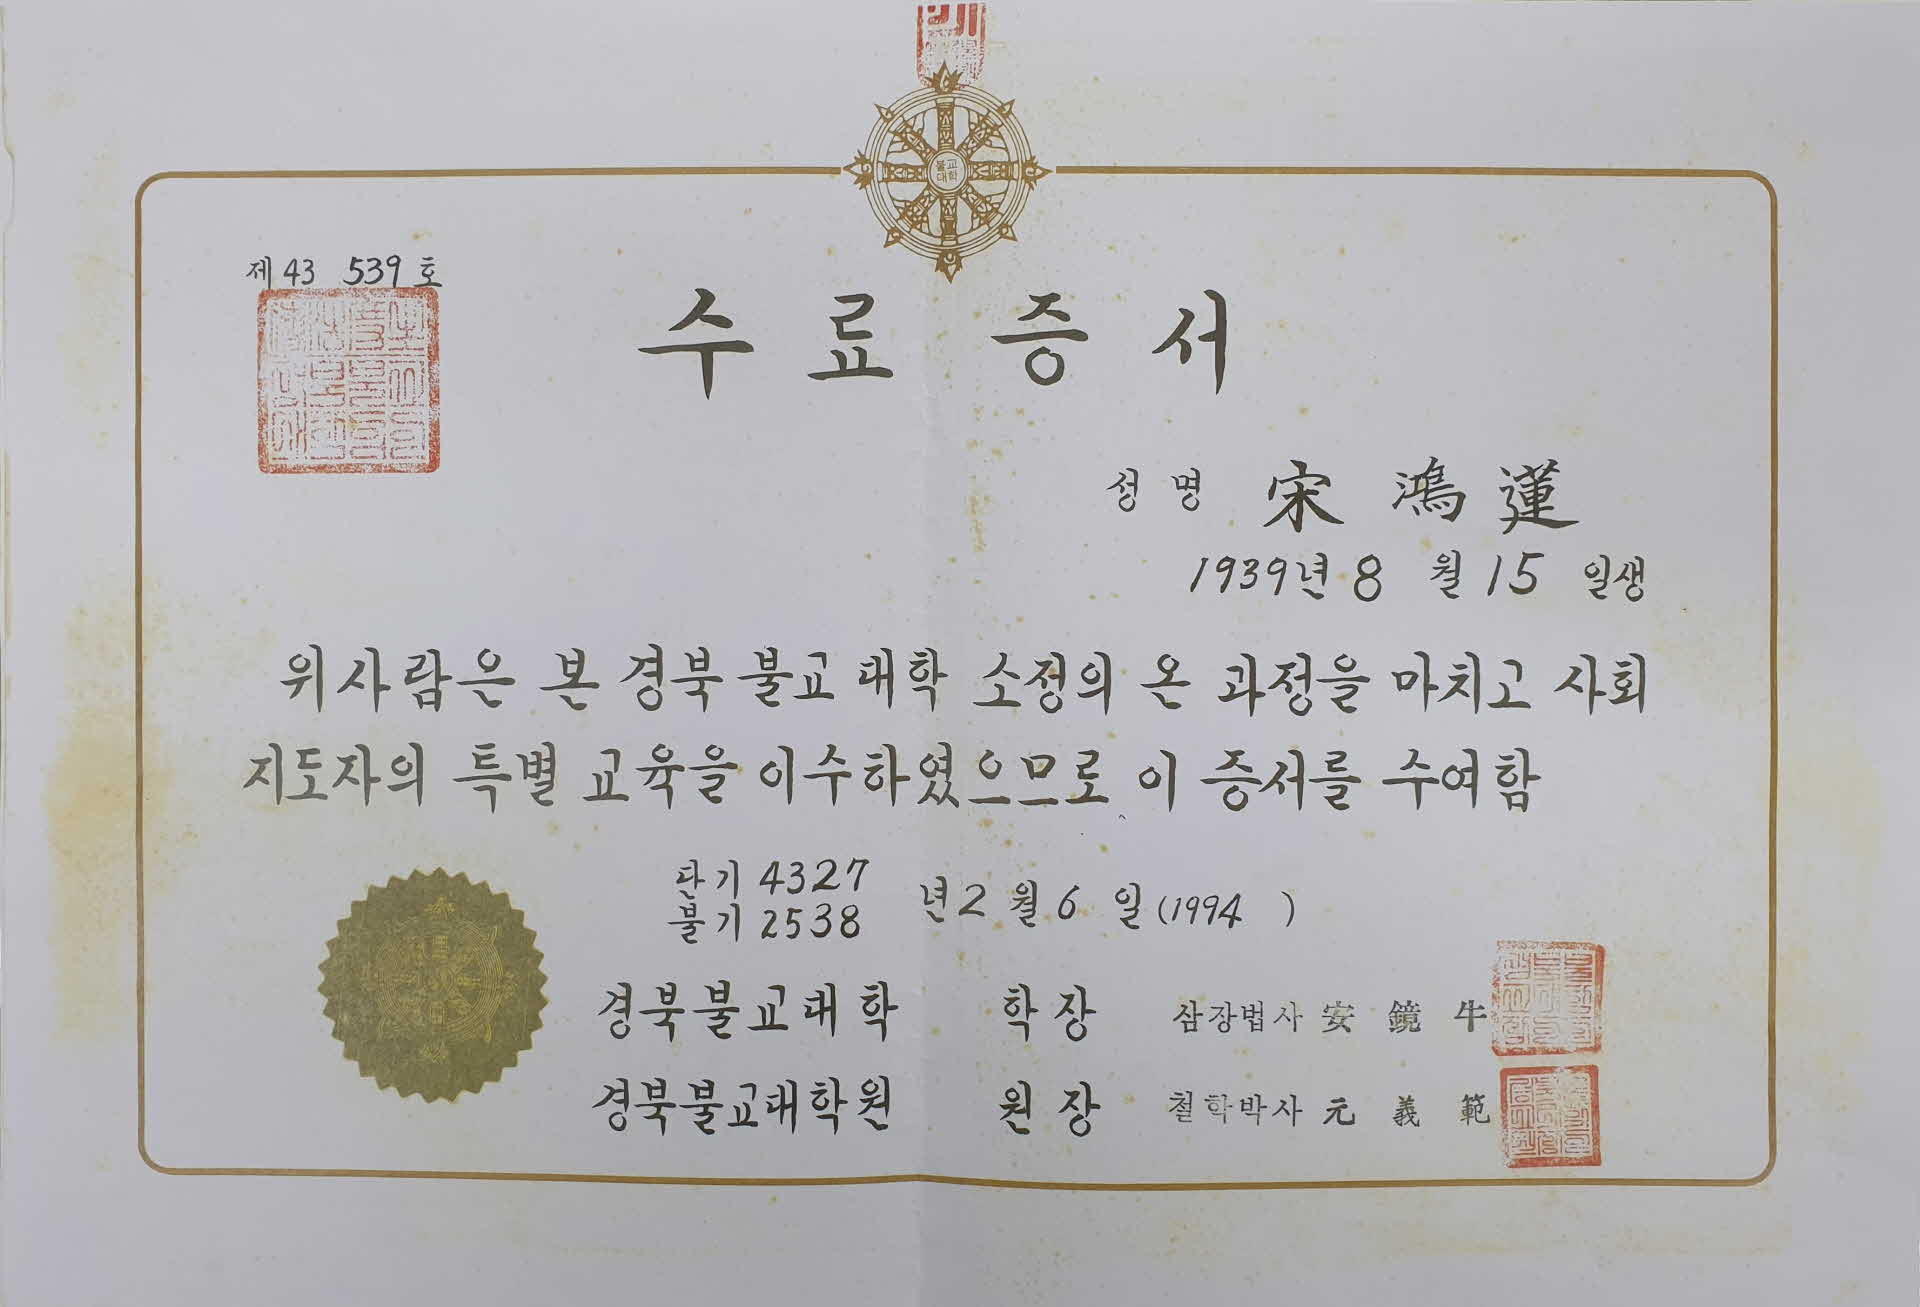 불교
대학
제 43 539 호
수료증서
성명 宋鴻蓮
1939년 8월 15일생
위사람은 본 경북 불교 대학 소정의 온 과정을 마치고 사회
지도자의 특별 교육을 이수하였으므로 이 증서를 수여함
단기 4327
불기 2538
년 2월 6일 (1994 )
경북불교대학 학장 삼장법사 安鏡牛
경북불교대학원 원장 철학박사 元義範